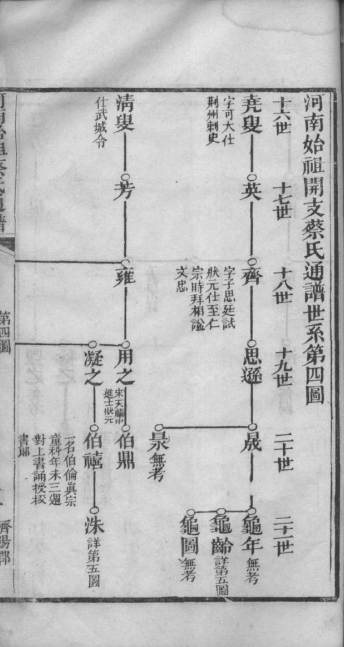 河南始祖開支蔡氏通譜世系第四圖
十六世
十七世
十八世
十九世
二十世
二十一世
堯叟
字可大仕
荆州刺史
英
齊
字子思廷試
狀元仕至仁
宗時拜相謚
文忠
思遜
晟
龜年
無考
龜齡
詳第五圖
龜圖
無考
晁
無考
清叟
仕武城令
芳
雍
用之
宋天禧中
進士狀元
伯鼎
凝之
伯禧
一名伯倫真宗
童科年未三週
對上書誦授校
書郎
洙
詳第五圖
第四圖
濟陽郡